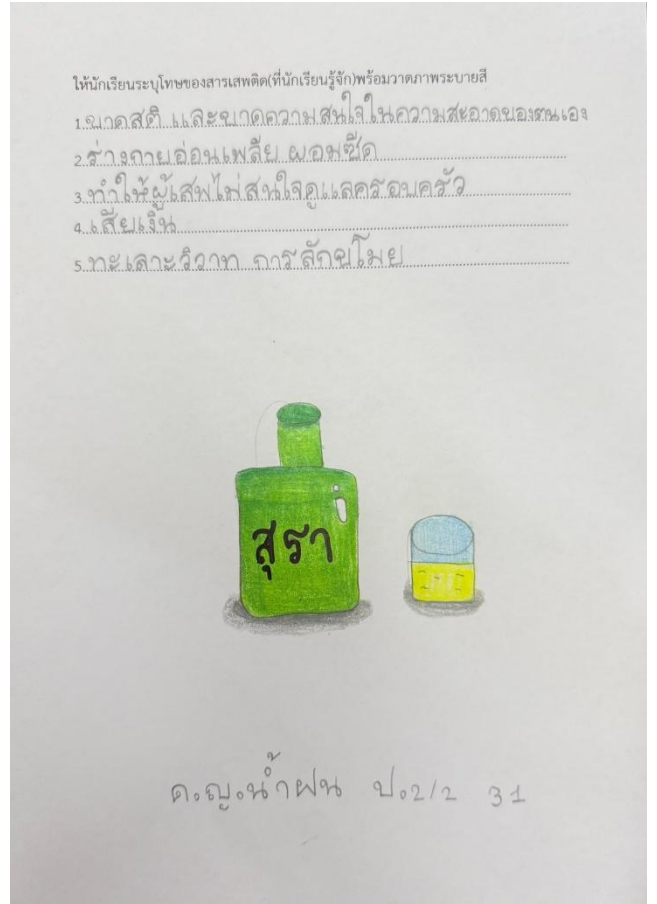 ให้นักเรียนระบุโทษของสารเสพติด(ที่นักเรียนรู้จัก)พร้อมวาดภาพระบายสี
1. ขาดสติ และขาดความสนใจในความสะอาดของตนเอง
2. ร่างกายอ่อนเพลีย ผอมซีด
3. ทำให้ผู้เสพไม่สนใจดูแลครอบครัว
4. เสียเงิน
5. ทะเลาะวิวาท การลักขโมย
สุรา
ด.ญ.น้ำฝน ป.2/2 31